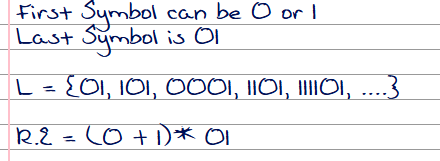 First Symbol can be 0 or 1
Last Symbol is 01
L = {01, 101, 0001, 1101, 111101, ....}
R.E = (0 + 1)* 01